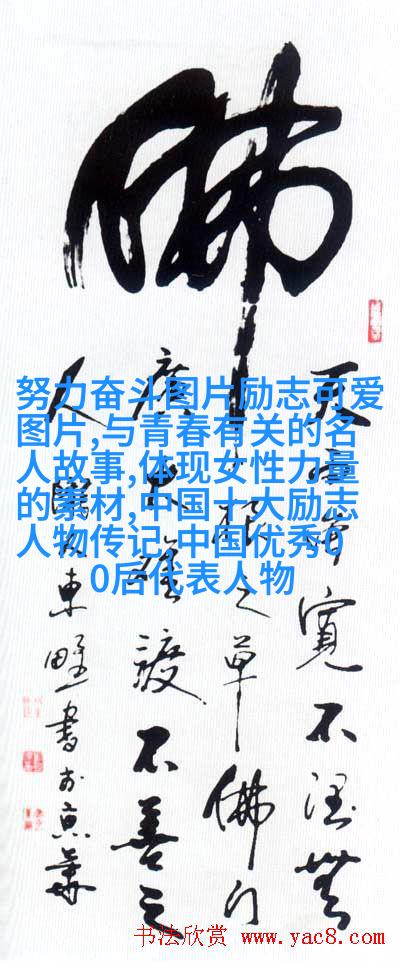 佛
天雨雖寬不润無
根之草佛门
廣大難渡不善之
人
東野書於京華
努力奋斗图片励志可爱
图片,与青春有关的名
人故事,体现女性力量
的素材,中国十大励志
人物传记,中国优秀0
0后代表人物
书法欣赏 www.yac8.com